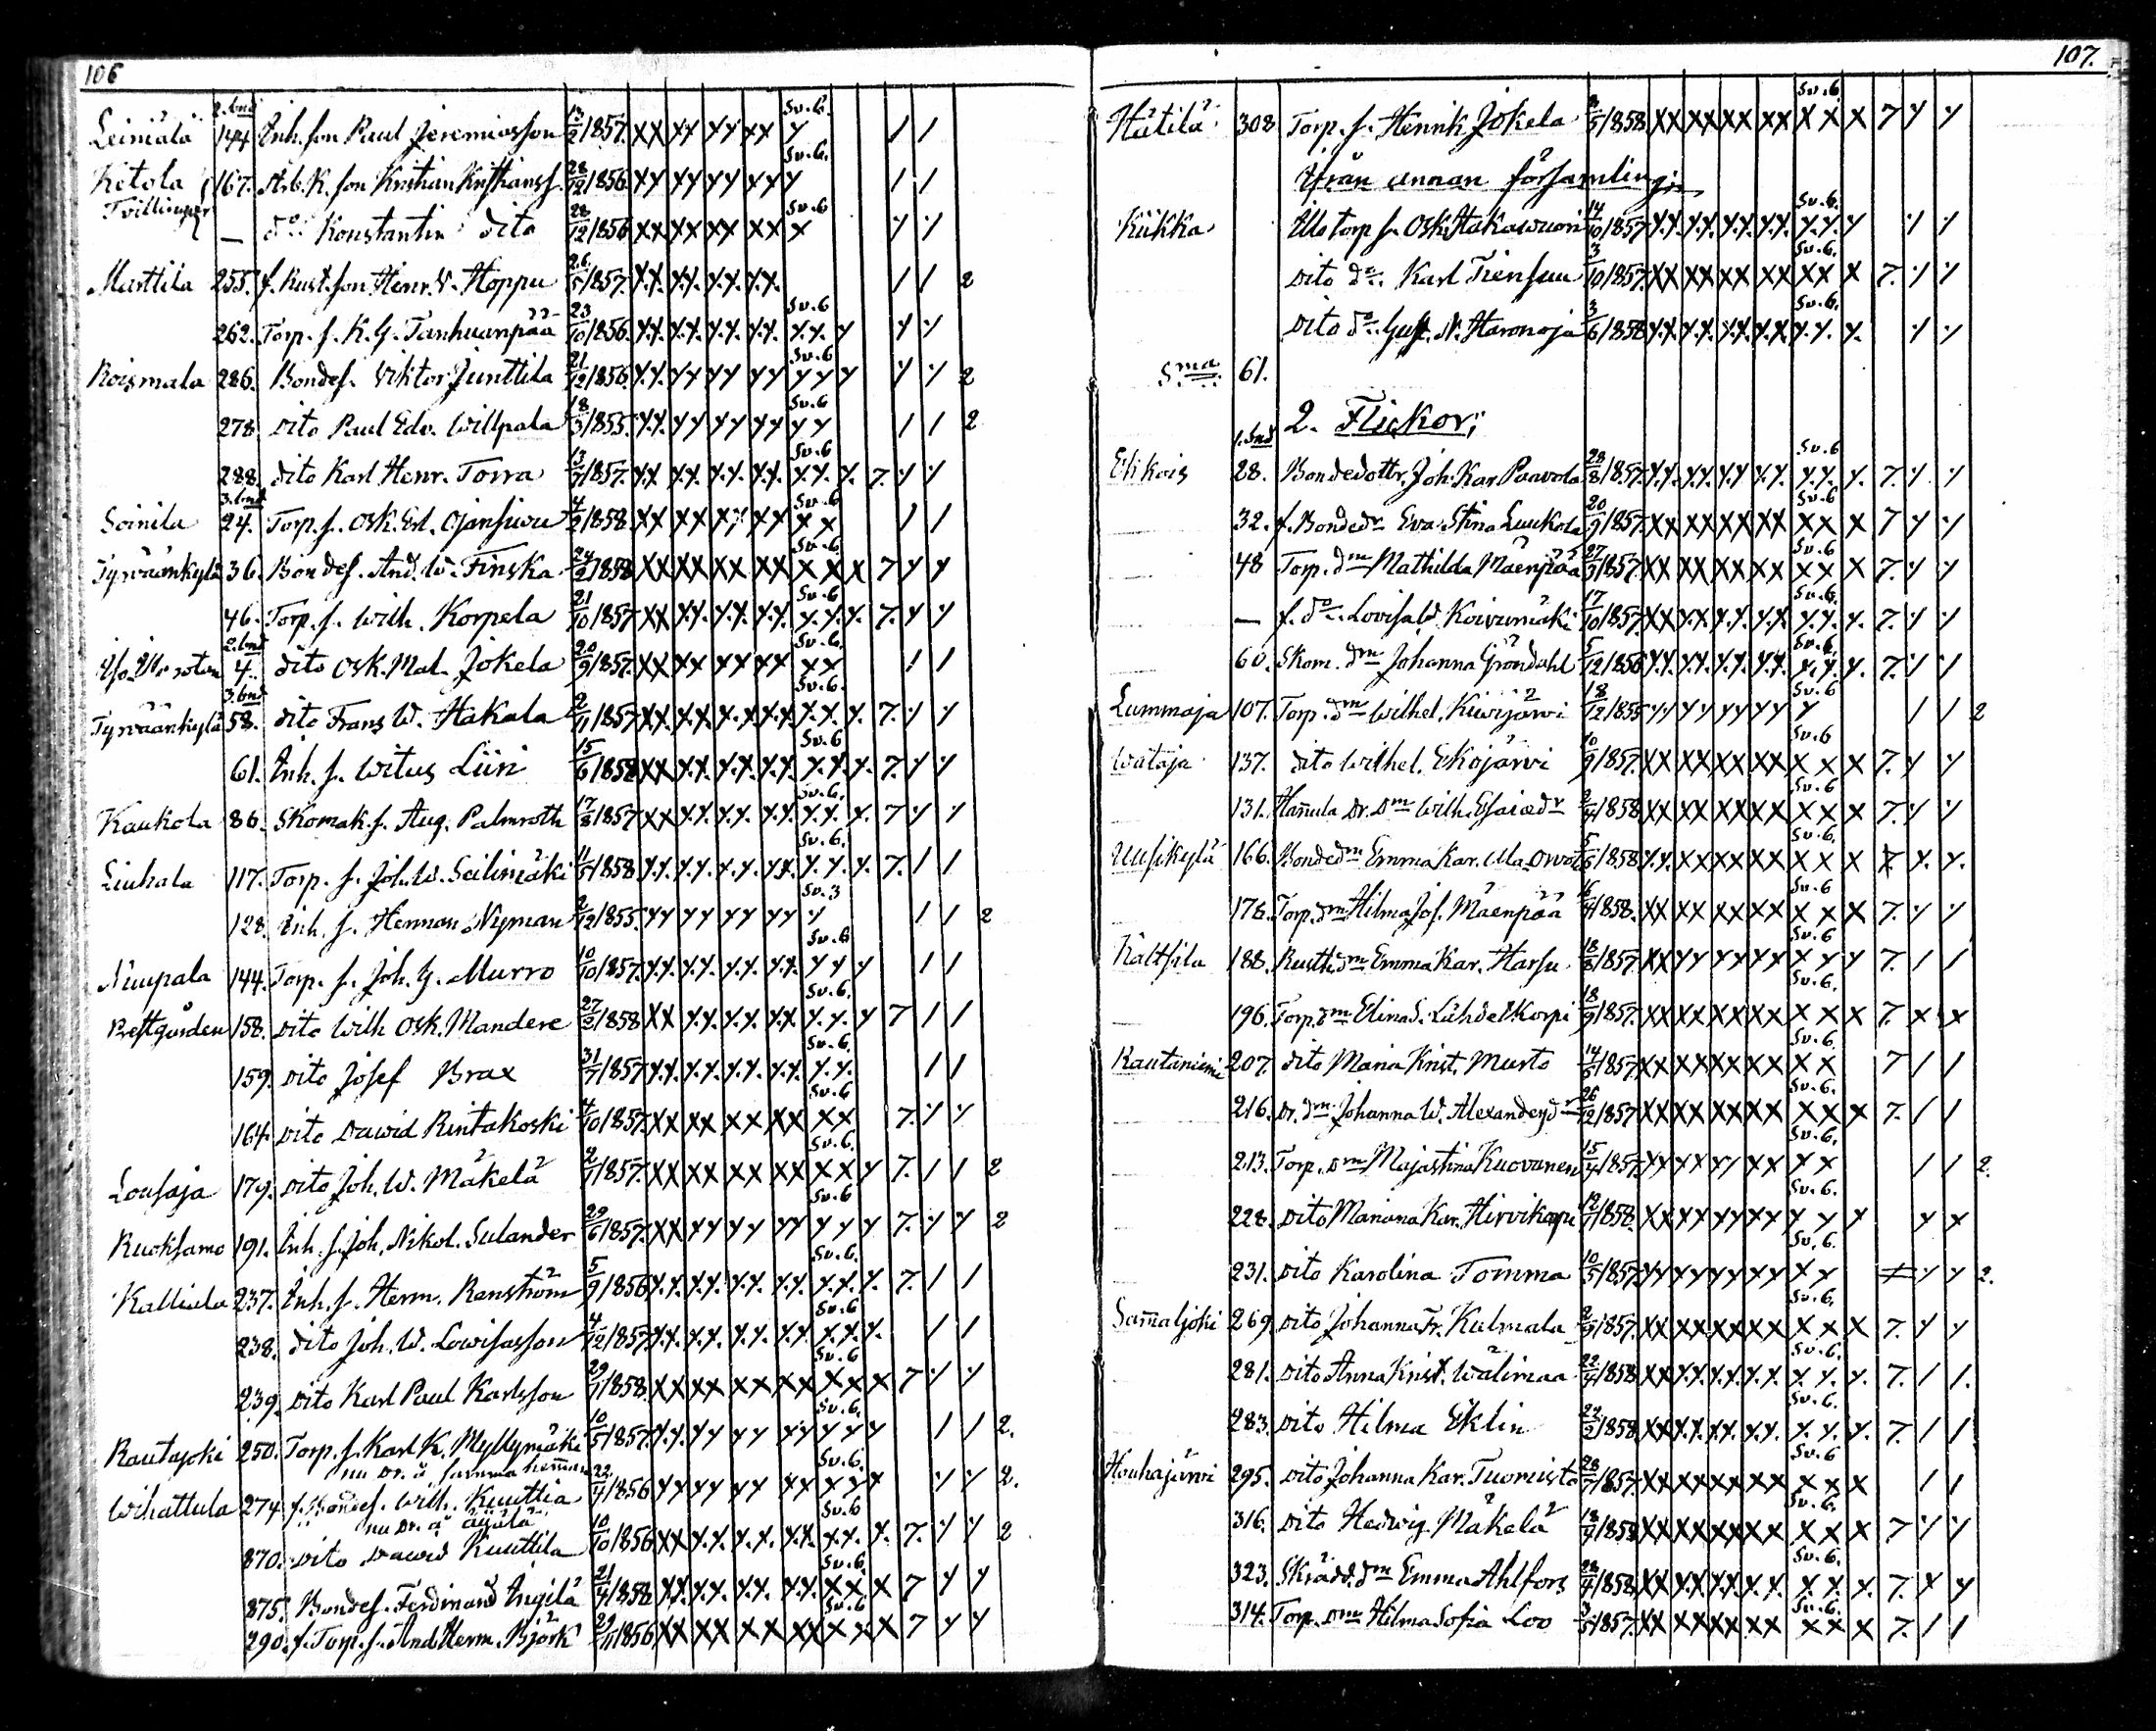 106
2. bnd
Leiniälä 144 Inh. son Paul Jeremiasson 13/2 1857. XX XX XX XX Sv. 6. X / /
Ketola 167. Arb. K. son Kristian Kristianss. 28/12 1856 XX XX XX XX Sv. 6. X / /
Tvillingar — do Konstantin dito 28/12 1856 XX XX XX XX Sv. 6 X
Marttila 255. f. Rust. son Henr. W. Hoppu 26/5 1857. X.X. X.X. X.X. X.X. / / 2
262. Torp. s. K. G. Tanhuanpää 23/10 1856. X.X. X.X. X.X. X.X. Sv. 6 X.X. X
Roismala 286. Bondes. Viktor Junttila 21/12 1856. X.X. XX XX XX Sv. 6 XX X 2
278. dito Paul Edv. Willpala 18/3 1855. X.X. XX XX XX Sv. 6 XX / / 2
288. dito Karl Henr. Torra 13/7 1857. XX X.X. X.X. X.X. Sv. 6 X.X. X. 7.
3. bnd
Soinila 24. Torp. s. Osk. Ed. Ojansuu 4/2 1858 XX XX XX XX Sv. 6 XX / /
Tyrväänkylä 36. Bondes. And. W. Finska 24/2 1858 XX XX XX XX Sv. 6 XX X 7
46. Torp. s. Wilh. Korpela 21/10 1857 XX X.X. X.X. X.X. Sv. 6 X.X. X. 7.
2. bnd
4. dito Osk. Mat. Jokela 20/9 1857. XX XX XX XX Sv. 6. XX / /
3. bnd
Tyrväänkylä 58. dito Frans W. Hakala 2/11 1857 XX X.X. X.X. X.X. Sv. 6. X.X. X. 7.
61. Inh. s. Witus Liin 15/6 1858 XX X.X. X.X. X.X. Sv. 6 X.X. X. 7.
Kaukola 86. Skomak. s. Aug. Palmroth 17/8 1857 XX X.X. X.X. X.X. Sv. 6. X.X. X. 7
Liuhala 117. Torp. s. Joh. W. Seilimäki 11/5 1858 X.X. X.X. X.X. X.X. Sv. 6. X.X. X. 7. / /
128. Inh. s. Herman Nyman 2/12 1855. XX XX XX XX Sv. 3 X / / 2
Nuupala 144. Torp. s. Joh. G. Murro 10/10 1857. X.X. X.X. X.X. X.X. Sv. 6 XX X / /
Prestgården 158. dito Wilh Osk. Mandere 27/2 1858 XX X.X. X.X. X.X. Sv. 6. X.X. X 7 / /
159. dito Josef Brax 31/7 1857 X.X. X.X. X.X. X.X. Sv. 6. X.X. / /
164. dito Dawid Rintakoski 4/10 1857 XX XX XX XX Sv. 6 XX 7.
Lousaja 179. dito Joh. W. Mäkelä 2/7 1857. XX XX XX XX Sv. 6. XX X 7. / / 2
Ruoksamo 191. Inh. s. Joh. Nikol. Sulander 29/6 1857. XX XX XX XX Sv. 6 XX X 7. 2
Kalliala 237. Inh. s. Herm. Renström 5/9 1856 X.X. X.X. X.X. X.X. Sv. 6. X.X. X. 7. / /
238. dito Joh. W. Lowisasson 4/12 1857 X.X. X.X. X.X. X.X. Sv. 6 X.X. X. / /
239. dito Karl Paul Karlsson 29/1 1858. XX XX XX XX Sv. 6 XX X 7
Rautajoki 250. Torp. s. Karl K. Myllymäki 10/5 1857 X.X. XX XX XX Sv. 6. XX X / / 2.
nu dr. å samma heman
Wihattula 274. f. Bondes. Wilh. Kuuttia 22/4 1856 XX XX XX XX Sv. 6. XX X 2.
nu dr. å
870. dito Dawid Kuuttila 10/10 1856 XX X.X. X.X. X.X. Sv. 6 X.X. X. 7. 2
875. Bondes. Ferdinand Anjilä 21/4 1858 XX X.X. X.X. X.X. Sv. 6. XX X 7
290. f. Torp. s. And Herm. Björk 29/11 1856 XX XX XX XX Sv. 6 XX X 7
107.
Hätilä 308 Torp. s. Henrik Jokela /5 1858 XX XX XX XX Sv. 6 XX X 7
Från annan församling:
Kiikka Ulo torp s. Osk. Hakawuori 14/10 1857 X.X. X.X. X.X. X.X. Sv. 6. X.X. X
Dito do. Karl Tiensuu 3/10 1857. XX XX XX XX Sv. 6. XX X 7.
Dito do. Gust. N. Haronoja 3/6 1858 X.X. X.X. X.X. X.X. Sv. 6. X.X. X.
Sma 61.
2. Flickor;
1. bnd
Elikois 28. Bondedottr. Joh. Kar. Paavola 28/8 1857. X.X. X.X. X.X. X.X. Sv. 6 X.X. X. 7.
32. f. Bondedr Eva Stina Luukola 20/9 1857. XX XX XX XX Sv. 6 XX X 7
48 Torp. dm Mathilda Mäenpää 27/3 1857. XX XX XX XX Sv. 6 XX X 7.
— f. do. Lovisa W. Koivumäki 17/10 1857. XX X.X. X.X. X.X. Sv. 6. X.X. X. 7.
60. Skom. dm Johanna Gröndahl 5/12 1856 X.X. X.X. X.X. X.X. Sv. 6. X.X. X. 7.
Lummaja 107. Torp. dm Wilhel. Kiwijärvi 18/12 1855 XX XX XX XX Sv. 6 X / / 2
Wataja 137. dito Wilhel. Ekojärvi 10/9 1857. XX XX XX XX Sv. 6 XX X 7.
131. Hannula Dr. Dm Wilh. Esaiædr 2/4 1858 XX XX XX XX Sv. 6 XX X 7.
Uusikylä 166. Bondedm Emma Kar. 5/5 1858 X.X. XX XX XX Sv. 6. XX X 7
178. Torp. dm Hilma Jos. Mäenpää 16/4 1858. XX XX XX XX Sv. 6 XX X 7.
Kaltsila 188. Rusth. dm Emma Kar. Harsu 18/8 1857 XX XX XX XX Sv. 6 XX X 7. / /
196. Torp. dm Elina S. Lähdekorpi 18/9 1857. XX XX XX XX Sv. 6. XX X 7. X X
Rautaniemi 207. dito Maria Krist. Musto 14/6 1857 XX XX XX XX Sv. 6. XX 7 / /
216. Dr. dm. Johanna W. Alexandersdr 26/12 1857 XX XX XX XX Sv. 6. XX X 7. / /
213. Torp. Dm Majastina Kuovanen 15/4 1857 XX XX XX XX Sv. 6. XX / / 2.
228. dito Mariana Kar. Hirvikorpi 12/7 1858. XX XX XX XX Sv. 6. XX X
231. dito Karolina Tomma 10/5 1857 XX XX XX XX Sv. 6. XX 2.
Sammaljoki 269. dito Johanna Fr. Kulmala 2/9 1857. XX XX XX XX Sv. 6. XX X 7.
281. dito Anna Krist. Wälimaa 22/4 1858 XX X.X. X.X. X.X. Sv. 6. X.X. X. 7. / /
283. dito Hilma Eklin 22/2 1858 XX X.X. X.X. X.X. Sv. 6. X.X. X. 7. / /
Houhajärvi 295. dito Johanna Kar. Tuomisto 28/7 1857. XX XX XX XX Sv. 6 XX X / /
316. dito Hedwig Mäkelä 18/9 1858 XX XX XX XX Sv. 6. XX X 7
323. Skrädd. dm Emma Ahlfors 28/4 1858 XX X.X. X.X. X.X. Sv. 6. X.X. X. 7.
314. Torp. Dm Hilma Sofia Loo 3/5 1857. XX XX XX XX Sv. 6. XX X 7. / /